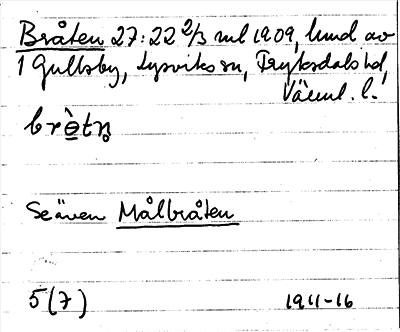 Bråten 27:22 2/3 mtl 1909, lund av
1 Gullsby, Lysviks sn, Fryksdals hd,
Värml. l.
bròtn̥
Se även Målbråten
5(7) 1911-16